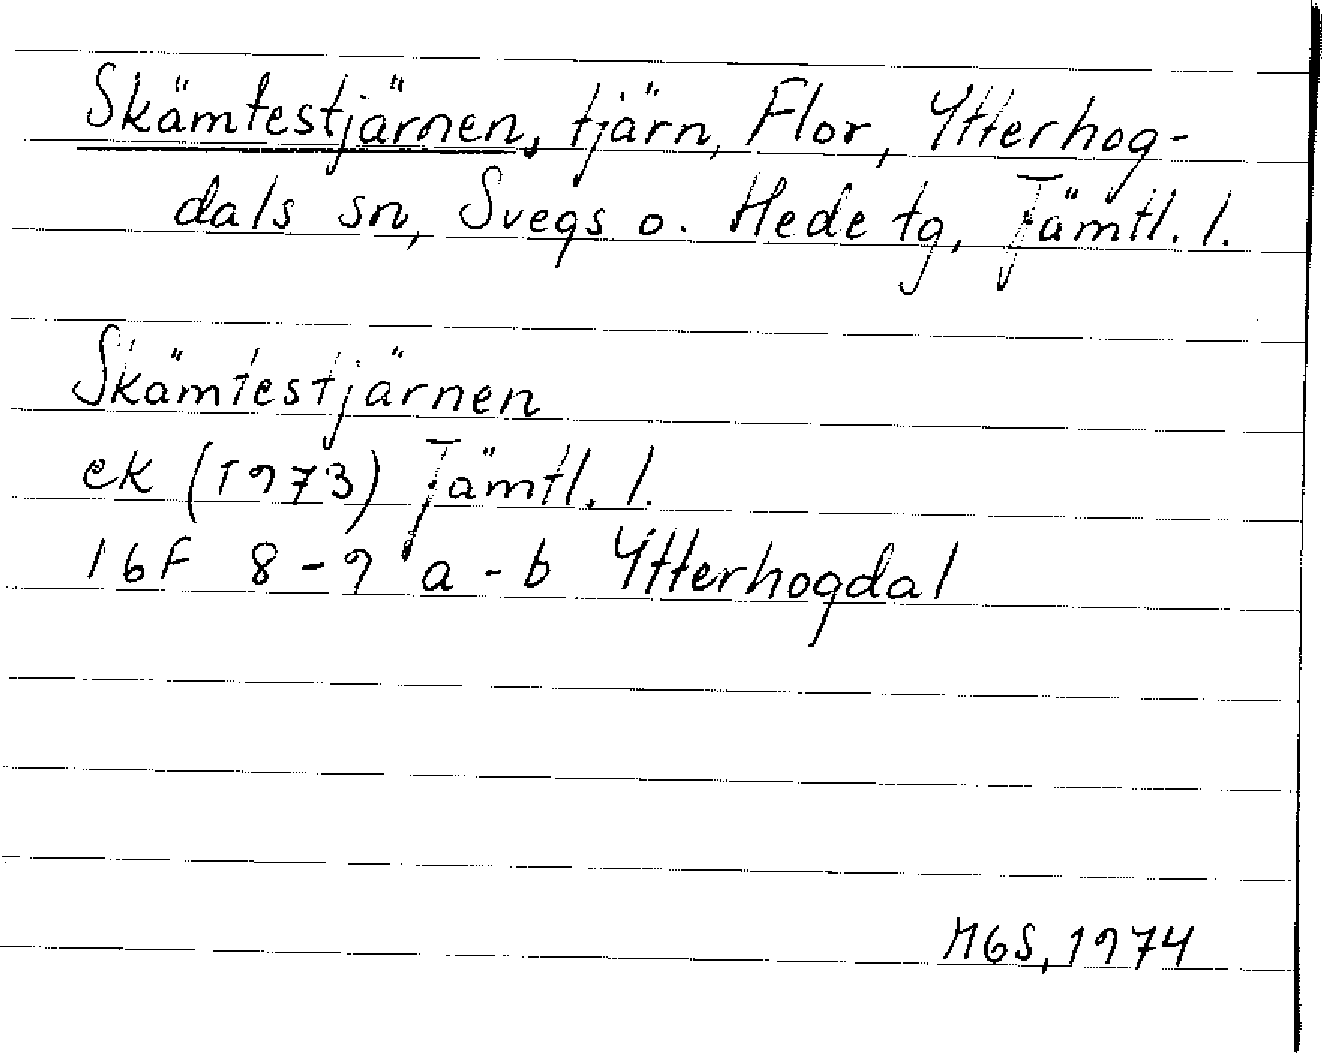 Skämtestjärnen, tjärn, Flor, Ytterhog-
dals sn, Svegs o. Hede tg, Jämtl. l.
Skämtestjärnen
ek (1973) Jämtl. l.
16F 8-9 a-b Ytterhogdal
MGS, 1974